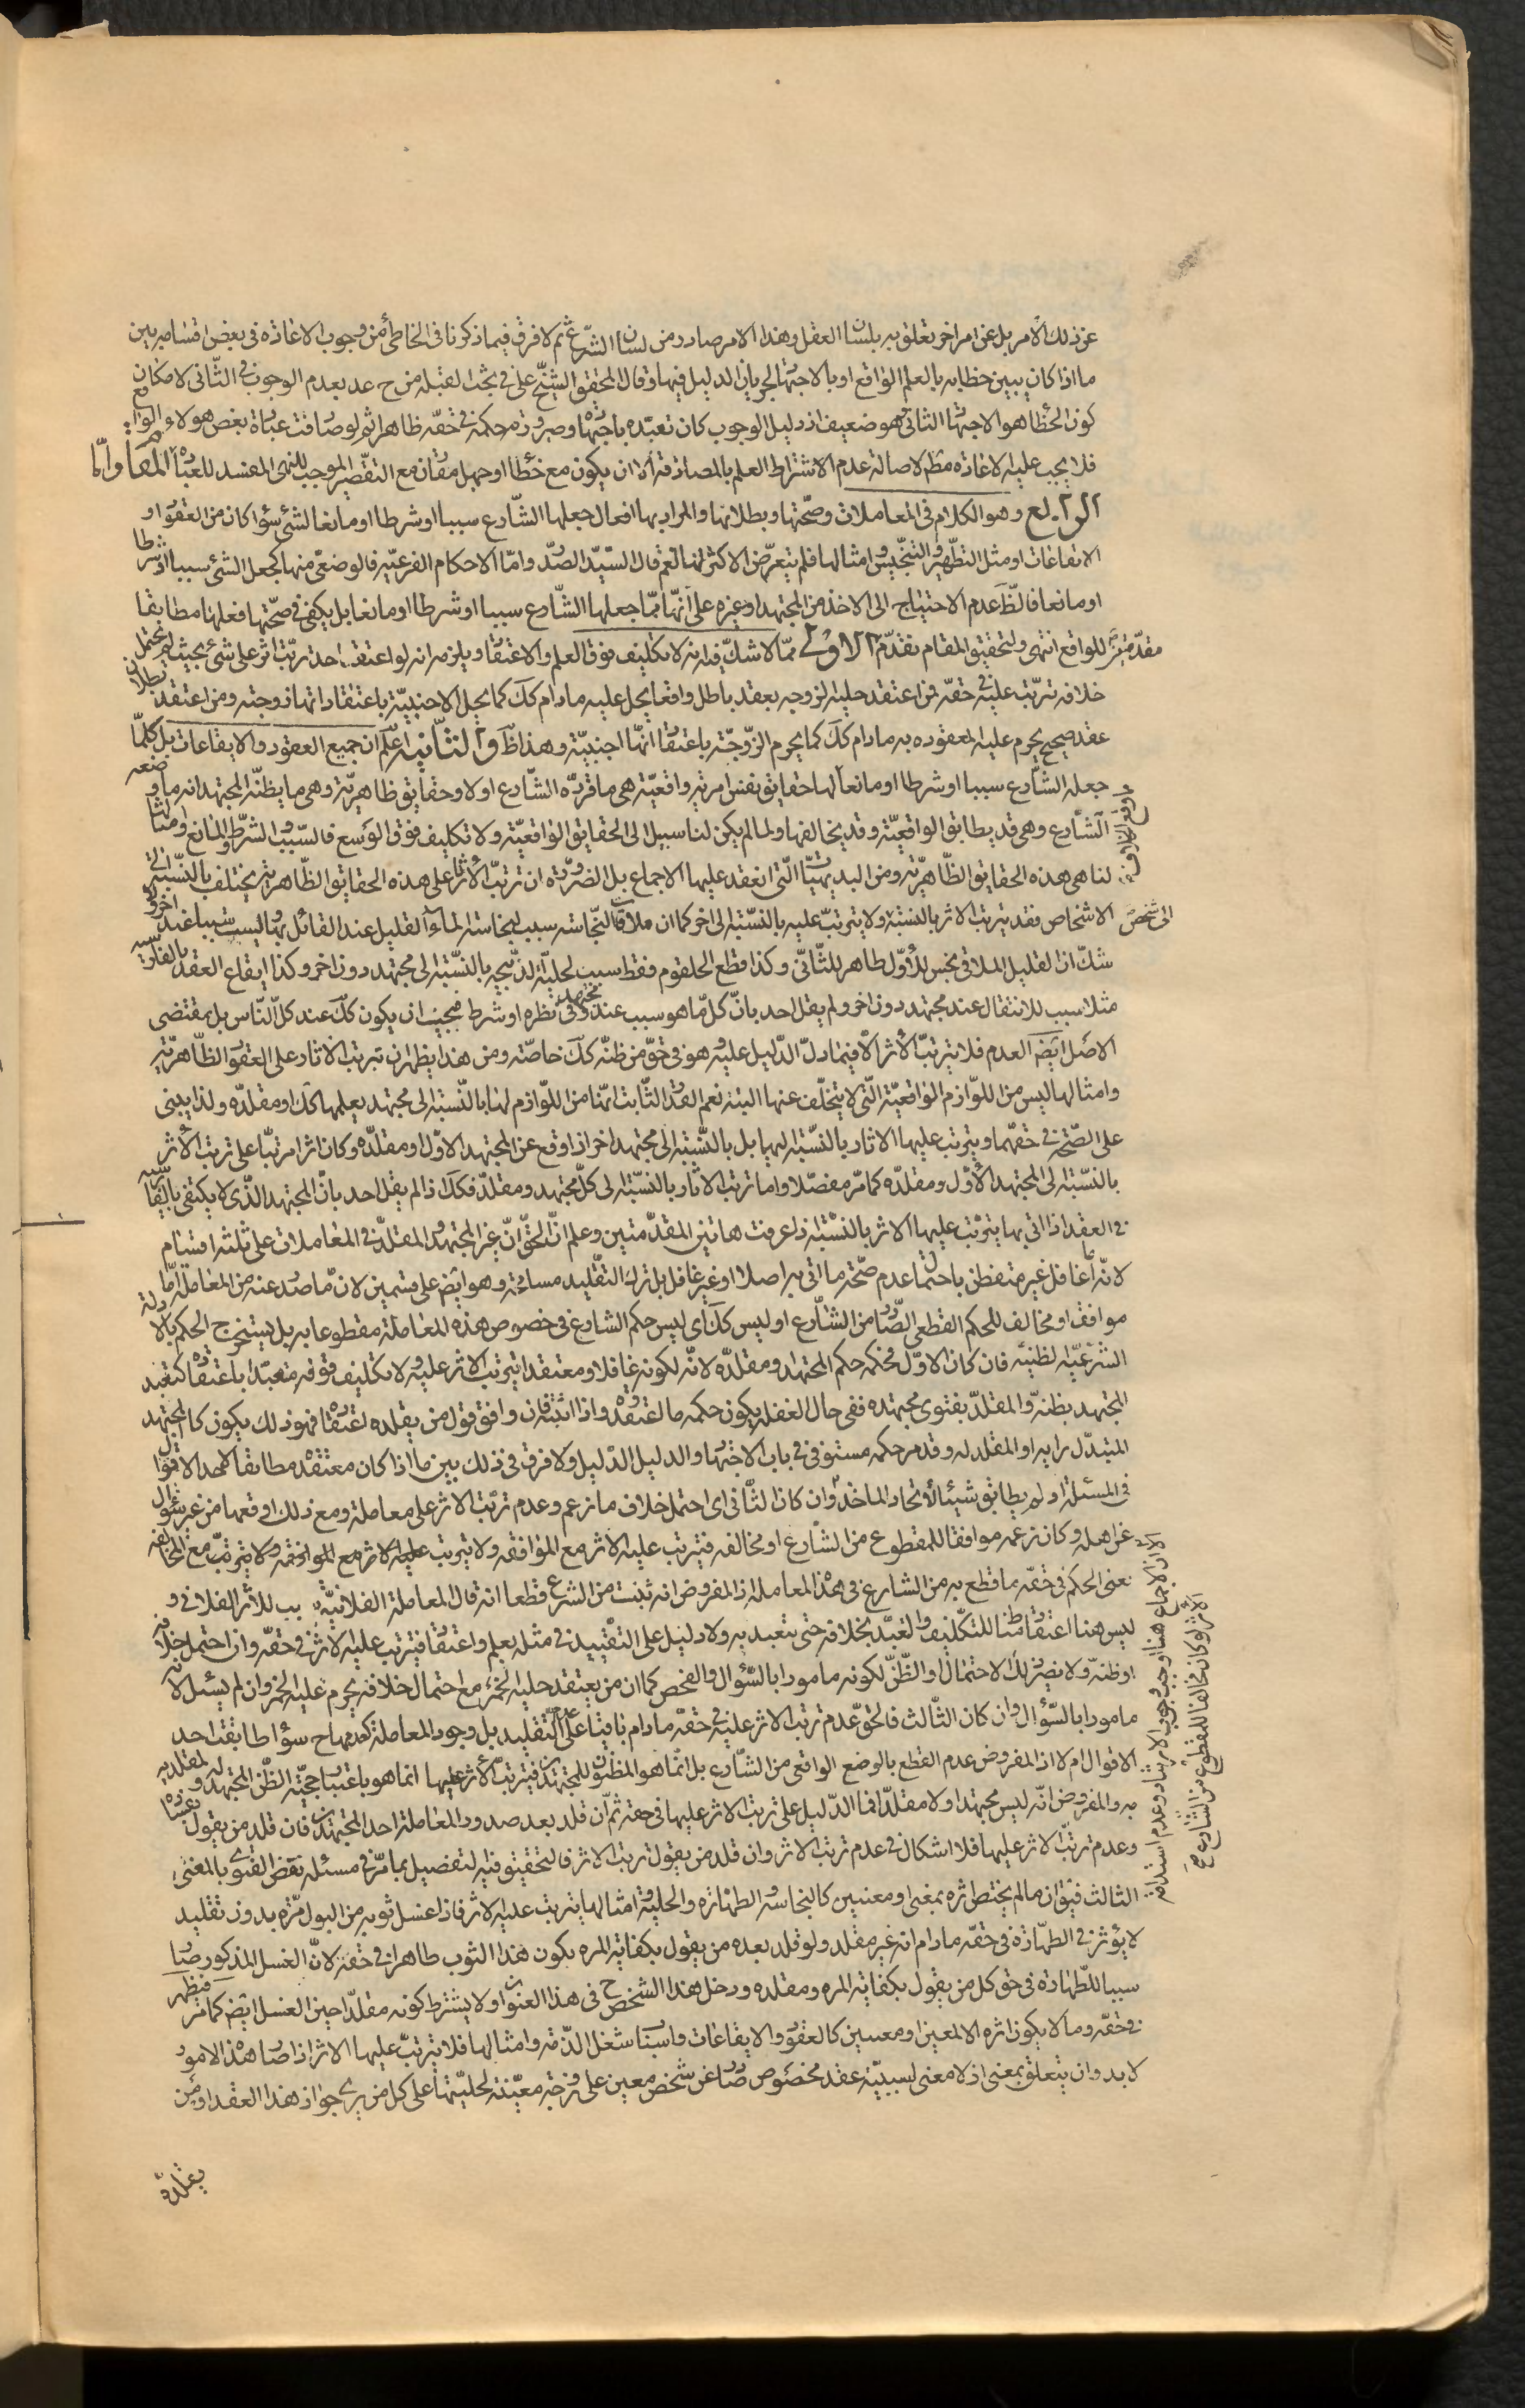 عن ذلك الأمر بل عن امر اخر يعلق به بلسان العقل وهذا الامر صادر من لسان الشرع ثم لا فرق فيما ذكرنا في الخاطئ من وجوب الاعادة في بعض اقسامه بين
ما اذا كان يبين خطابه بالعلم الواقع او بالاجتهاد لجريان الدليل فيها وقال المحقق الشيخ علي في بحث القبلة من ح عد بعدم الوجوب في الثاني لامكان
كون الخطا هو الاجتهاد الثاني وهو ضعيف اذ دليل الوجوب كان تعبده باجتهاده وصيرورته حكمه في حقه ظاهرا ثم لو صادفت عبادة بعض هولاء الواقع
فلا يجب عليه الاعادة مطم لاصالة عدم الاشتراط العلم بالمصادفة الا ان يكون مع خطأ او جهل مقارن مع التقصير الموجب للنهى المفسد للعبادة المقام
الرابع وهو الكلام في المعاملات وصحتها وبطلانها والمراد بها افعال جعلها الشارع سببا او شرطا او مانعا لشئ سواء كان من العقود او
الايقاعات او مثل التطهير والتنجيس وامثالها فلم يتعرض الاكثر لها نعم قال السيد الصدر واما الاحكام الفرعية فالوضعى منها كجعل الشئ سببا او شرطا
او مانعا فالظ عدم الاحتياج الى الاخذ من المجتهد او غيره على انها مما جعلها الشارع سببا او شرطا او مانعا بل يكفى في صحتها فعلها مطابقا
للواقع انتهى ولتحقيق المقام نقدم مقدمتين الاولى مما لا شك فيه انه لا تكليف فوق العلم والاعتقاد ويلزمه انه لو اعتقد احد ترتب اثر على شئ بحيث لم يحتمل
خلافه ترتب عليه في حقه فمن اعتقد حلية الزوجه بعقد باطل واقعا يحل عليه ما دام كك كما يحل الاجنبية باعتقاد انها زوجته ومن اعتقد بطلان
عقد صحيح يحرم عليه المعقوده به ما دام كك كما يحرم الزوجة باعتقاد انها اجنبية وهذا ظ والثانيه اعلم ان جميع العقود والايقاعات بل كلما
جعله الشارع سببا او شرطا او مانعا لها حقايق نفس امرية واقعية هى ما قرره الشارع اولا وحقايق ظاهرية وهى ما يظنه المجتهد انه ما وضعه
الشارع وهى قد يطابق الواقعية وقد يخالفها ولما لم يكن لنا سبيل الى الحقايق الواقعية ولا تكليف فوق الوسع فالسبب والشرط والمانع وامثالها
لنا هى هذه الحقايق الظاهرية ومن البديهيات التى انعقد عليها الاجماع بل الضرورة ان ترتب الاثار على هذه الحقايق الظاهرية يختلف بالنسبة الى
الاشخاص فقد يترتب الاثر بالنسبة الى شخص ولا يترتب عليه بالنسبة الى اخر كما ان ملاقات النجاسة سبب لنجاسة الماء القليل عند القائل بها ليست سببا عند اخر ولا
شك ان القليل الملاقى نجس للاول طاهر للثانى وكذا قطع الحلقوم فقط سبب لحلية الذبيحه بالنسبة الى مجتهد دون اخر وكذا ايقاع العقد بالفارسيه
مثلا سبب للانتقال عند مجتهد دون اخر ولم يقل احد بان كلما هو سبب عند مجتهد وفى نظره او شرط فيجب ان يكون كك عند كل الناس بل مقتضى
الاصل ايضم العدم فلا يترتب الاثر الا فيما دل الدليل عليه وهو في حق من ظنه كك خاصة ومن هذا يظهر ان ترتب الاثار على العقود الظاهرية
وامثالها ليس من اللوازم الواقعية التى لا يتخلف عنها البتة نعم القدر الثابت انها من اللوازم لها بالنسبة الى مجتهد يعلمها كك او مقلده ولذا يبنى
على الصحة في حقهما ويترتب عليها الاثار بالنسبة اليهما بل بالنسبة الى مجتهد اخر اذا وقع عن المجتهد الاول او مقلده وكان اثرا مرتبا على ترتب الاثر
بالنسبة الى المجتهد الاول ومقلده كما مر مفصلا واما ترتب الاثار بالنسبة الى كل مجتهد ومقلد فكلا اذ لم يقل احد بان المجتهد الذى لا يكتفى بالفارسية
في العقد اذا اتى بها يترتب عليها الاثر بالنسبة اذا عرفت هاتين المقدمتين وعلم ان الحق ان غير المجتهد والمقلد في المعاملات على ثلثة اقسام
لانه اما غافل غير متفطن باحتمال عدم صحة ما اتى به اصلا او غير غافل بل ترك التقليد مسامحة وهو ايضم على قسمين لان ما صدر عنه من المعاملة اما
موافق او مخالف للحكم القطعى الصادر من الشارع او ليس كك اى ليس حكم الشارع في خصوص هذه المعاملة مقطوعا به بل يستخرج الحكم بالادلة
الشرعية الظنية فان كان الاول فحكمه حكم المجتهد ومقلده لانه لكونه غافلا ومعتقدا يترتب الاثر عليه ولا تكليف فوقه متعبد باعتقاده كتعبد
المجتهد بظنه والمقلد بفتوى مجتهده ففى حال الغفلة يكون حكمه ما اعتقده واذا انتبه فان وافق قول من يقلده اعتقاده فهو ذلك يكون كالمجتهد
المتبدل رايه او المقلد له وقد مر حكمه مستوفى في باب الاجتهاد والدليل الدليل ولا فرق في ذلك بين ما اذا كان معتقده مطابقا لاحد الاقوال
في المسئلة او لم يطابق شيئا لاتحاد الماخذ وان كان الثانى اى احتمل خلاف ما زعم وعدم ترتب الاثر على معاملة ومع ذلك اوقعها من غير سؤال
عن اهله وكان زعمه موافقا للمقطوع من الشارع او مخالفه فيترتب عليه الاثر مع الموافقه ولا يترتب عليه الاثر مع الموافقه ولا يترتب مع المخالفه
يعنى الحكم في حقه ما قطع به من الشارع في هذا المعاملة اذ المفروض انه ثبت من الشرع قطعا انه قال المعاملة الفلانية سبب للاثر الفلانى و
ليس هنا اعتقاد مناط للتكليف والتعبد بخلافه حتى يتعبد به ولا دليل على التقييد في مثله بعلم واعتقاد فيترتب عليه الاثر في حقه وان احتمل خلافه
او ظنه ولا يضر ذلك الاحتمال او الظن لكونه مامورا بالسؤال والفحص كما ان من يعتقد حلية الخمر مع احتمال خلافه يحرم عليه الخمر وان لم يسئل لانه
مامورا بالسؤال وان كان الثالث فالحق عدم ترتب الاثر عليه في حقه ما دام باقيا على التقليد بل وجود المعاملة كعدمها ح سواء طابقت احد
الاقوال ام لا اذ المفروض عدم القطع بالوضع الواقعى من الشارع بل انما هو المظنون للمجتهدين فيترتب الاثر عليها انما هو باعتبار حجية الظن للمجتهد ولمقلديه
به والمفروض انه ليس مجتهدا ولا مقلدا فما الدليل على ترتب الاثر عليها في حقه ثم ان قلد بعد صدور المعاملة احد المجتهدين فان قلد من يقول بفساده
وعدم ترتب الاثر عليها فلا اشكال في عدم ترتب الاثر وان قلد من يقول ترتب الاثر فالتحقيق فيه التفصيل بما مر في مسئلة نقض الفتوى بالمعنى
الثالث فيق ان ما لم يختص اثره بمعين او معنيين كالنجاسة والطهارة والحلية وامثالها يترتب عليه الاثر فاذا غسل ثوبه من البول مرة بدون تقليد
لا يؤثر في الطهارة في حقه ما دام انه غير مقلد ولو قلد بعده من يقول بكفاية المره يكون هذا الثوب طاهرا في حقه لان الغسل المذكور صار
سببا للطهارة في حق كل من يقول بكفاية المره ومقلده ودخل هذا الشخص ح في هذا العنوان ولا يشترط كونه مقلدا حين الغسل ايضم كما مر فتطهر
في حقه وما لا يكون اثره الا لمعين او معينين كالعقود والايقاعات واسباب شغل الذمة وامثالها فلا يترتب عليها الاثر اذا صار هذا الامور
لا بد وان يتعلق بمعنى اذ لا معنى لسببية عقد مخصوص صادر عن شخص معين على زوجة معينة لحليتها على كل من يرى جواز هذا العقد او من
يقلده
لان الاجماع هنا اوجب وجوب الارشاد وعدم استدامة
الاثر لو كان مخالفا للمقطوع من الشارع ح